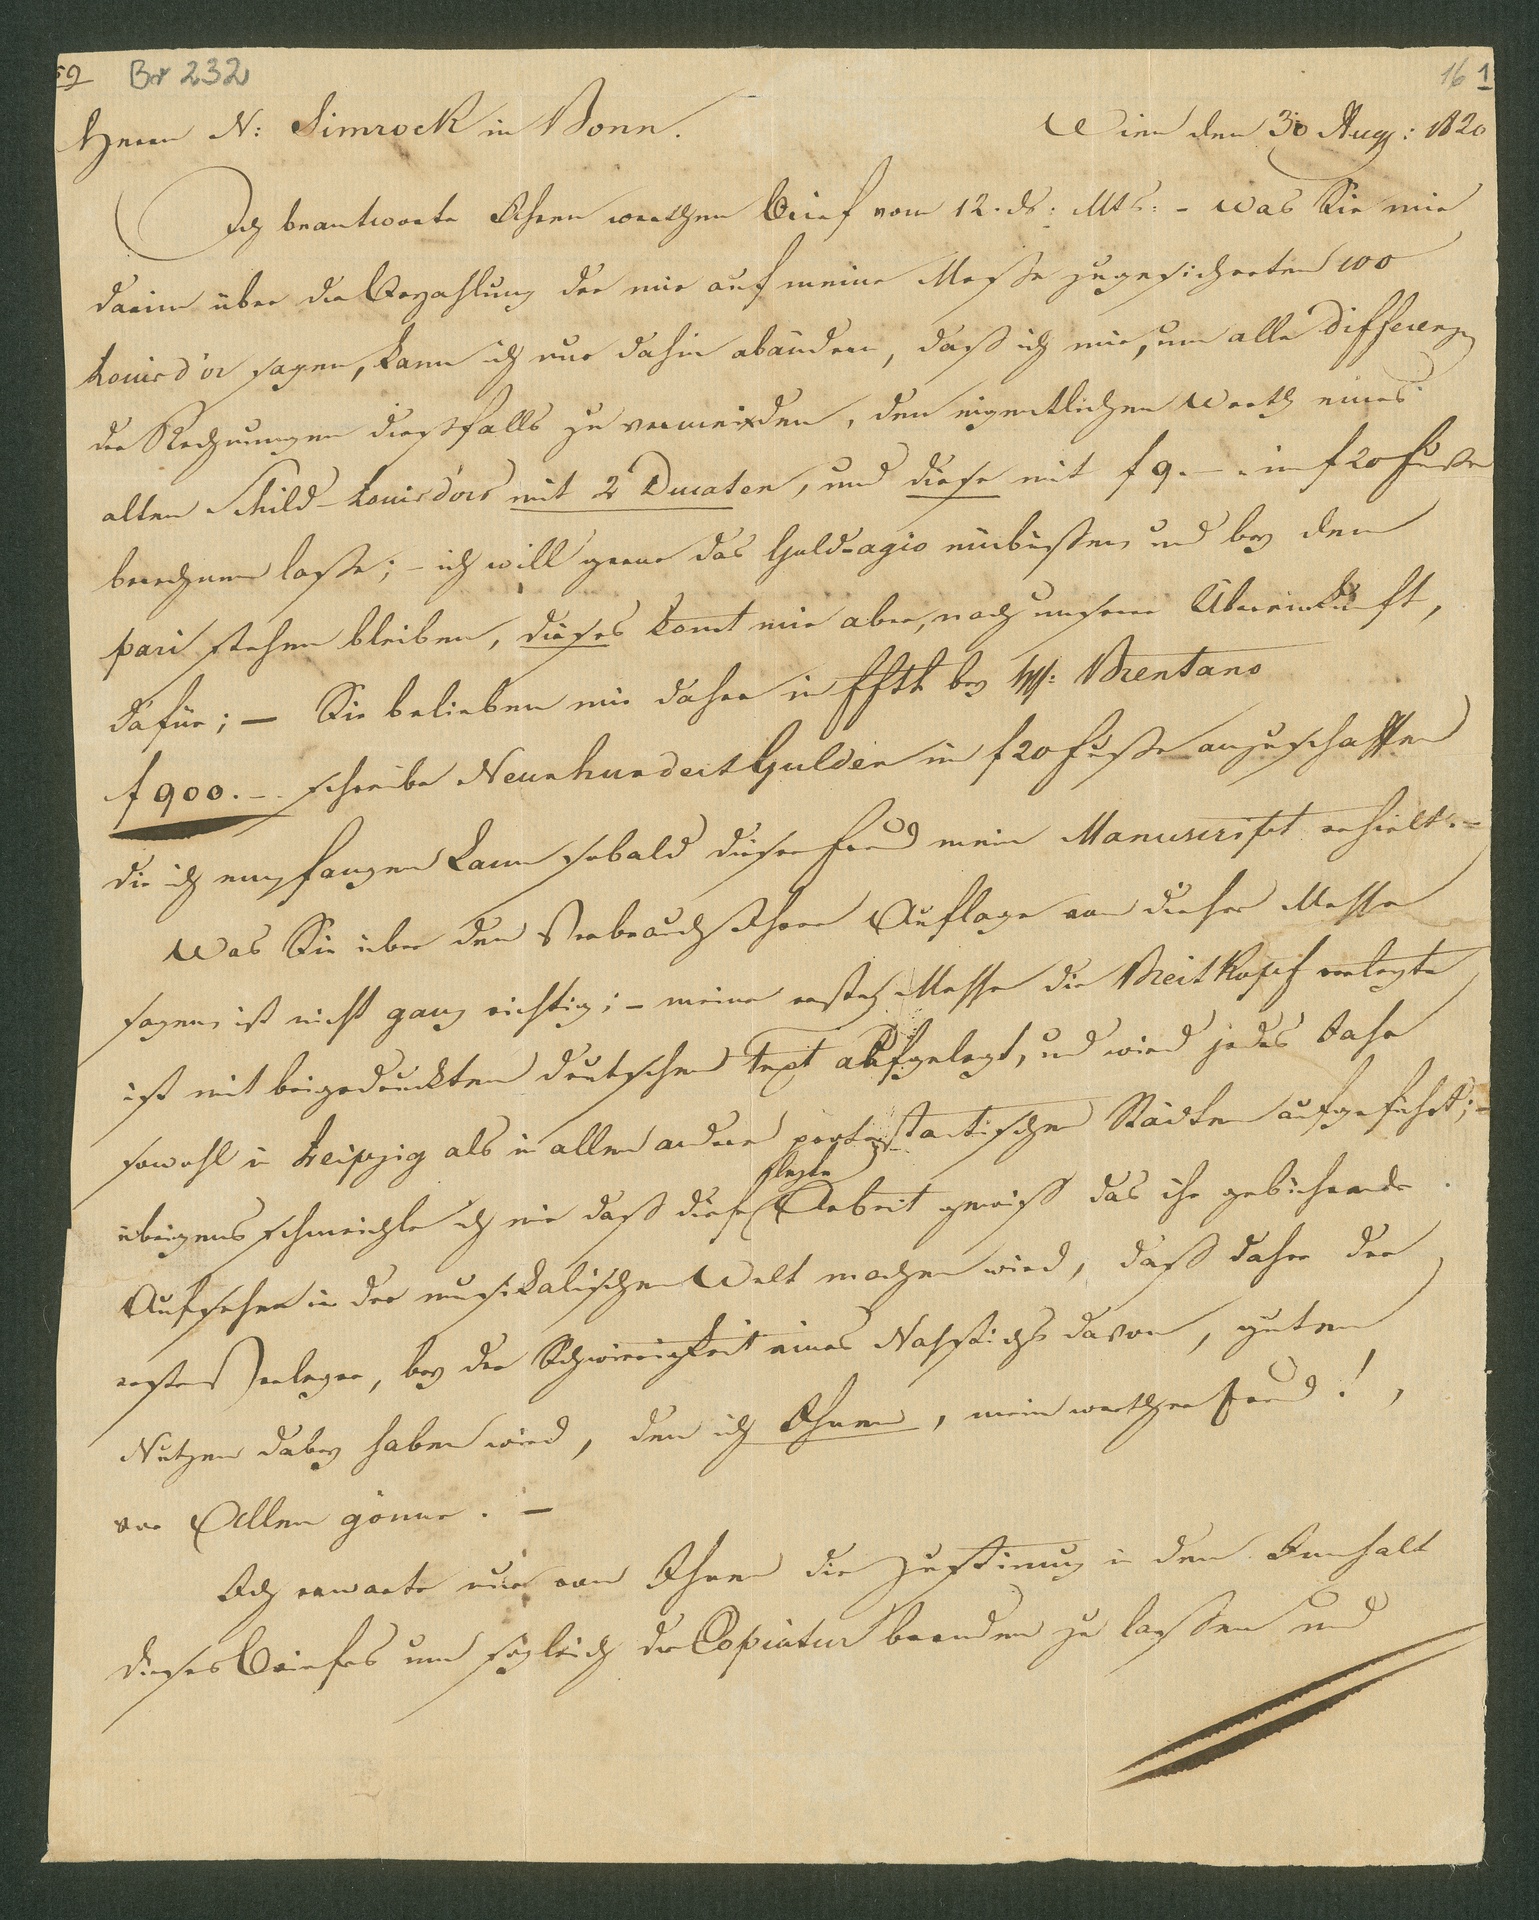 59 Br 232 16 1
Herrn N: Simrock in Bonn. Wien den 30 Aug: 1820
Ich beantworte Ihren werthen Brief vom 12. ds: Mts: - was Sie mir
darin über die Bezahlung der mir auf meine Messe zugesicherten 100
Louis d'or sagen, kann ich nur dahin abändern, daß ich mir, um alle Differenz
der Rechnungen dießfalls zu vermeiden, den eigentlichen Werth eines
alten Schild-Louisdors mit 2 Ducaten, und diese mit f 9.- im f 20 Fuße
berechnen laße; - ich will gerne das Gold-agio einbüßen und bey dem
pari stehen bleiben, dieses komt mir aber, nach unserer Übereinkunft,
dafür; — Sie belieben mir daher in ffth bey H: Brentano
f 900.- schreibe Neunhundert Gulden im f 20 Fuße anzuschaffen
die ich empfangen kann sobald dieser Freund mein Manuscript erhielt. -
Was Sie über den Verbrauch Ihrer Auflage von dieser Messe
sagen ist nicht ganz richtig; - meine erste Messe die Breitkopf verlegte
ist mit beigedruckten deutschen Text aufgelegt, und wird jedes Jahr
sowohl in Leipzig als in allen andern protestantischen Städten aufgeführt; -
letzte
übrigens schmeichle ich mir daß diese Arbeit gewiß das ihr gebührende
Aufsehen in der musikalischen Welt machen wird, daß daher der
erste Verleger, bey der Schwierigkeit eines Nachstichs davon, guten
Nutzen dabey haben wird, den ich Ihnen, mein werther Freund!,
vor Allen gönne. —
Ich erwarte nur von Ihnen die Zustimung in den Innhalt
dieses Briefes um sogleich die Copiatur beenden zu lassen und